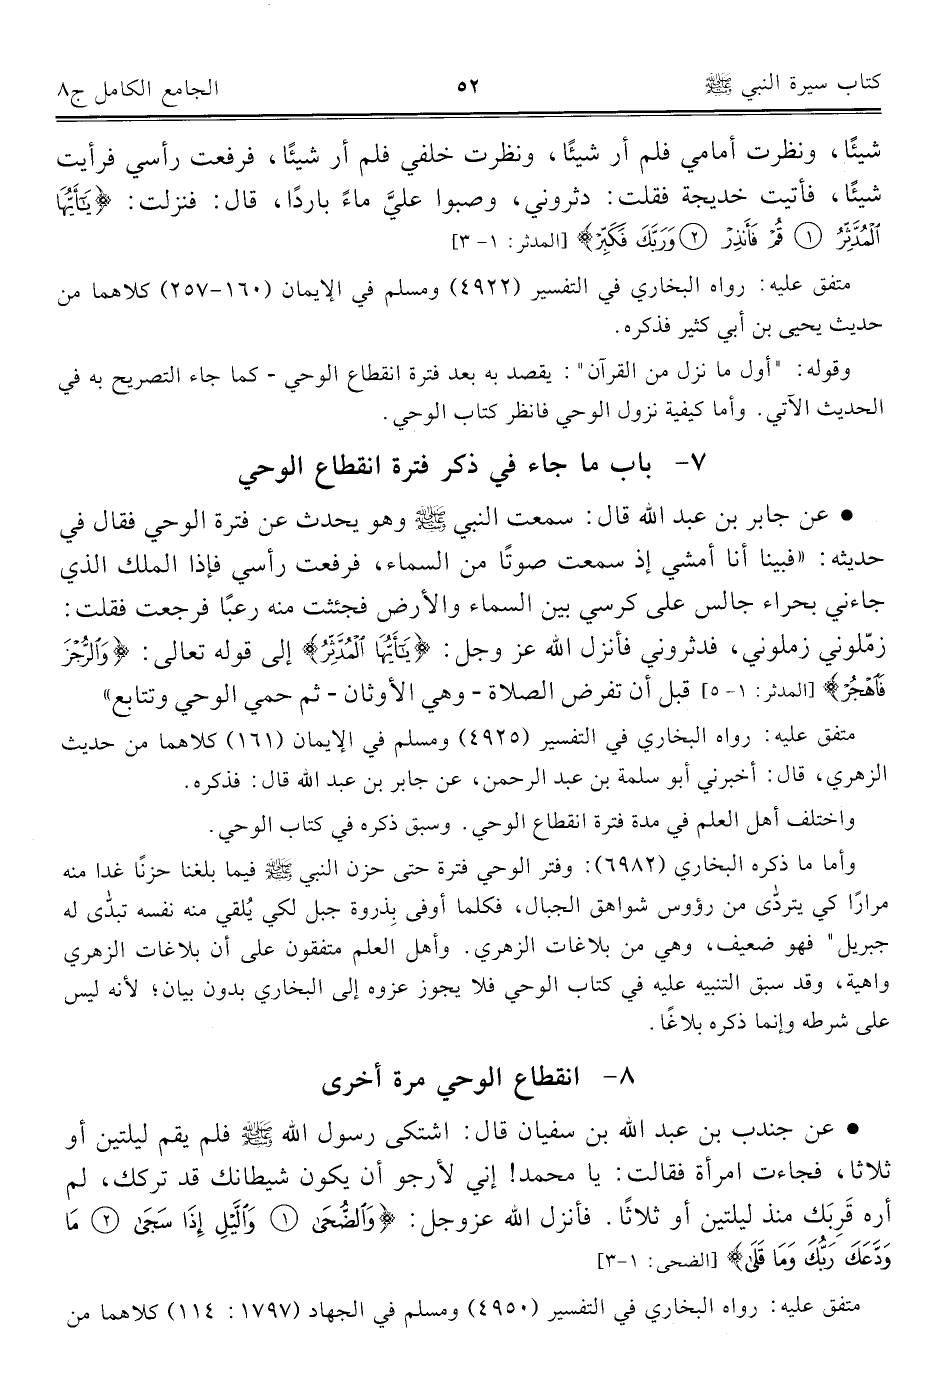 كتاب سيرة النبي ﷺ ٥٢ الجامع الكامل ج٨
شيئًا، ونظرت أمامي فلم أر شيئًا، ونظرت خلفي فلم أر شيئًا، فرفعت رأسي فرأيت
شيئًا، فأتيت خديجة فقلت: دثروني، وصبوا عليَّ ماءً باردًا، قال: فنزلت: ﴿يَٰٓأَيُّهَا
ٱلْمُدَّثِّرُ ١ قُمْ فَأَنذِرْ ٢ وَرَبَّكَ فَكَبِّرْ﴾ [المدثر: ١- ٣]
متفق عليه: رواه البخاري في التفسير (٤٩٢٢) ومسلم في الإيمان (١٦٠-٢٥٧) كلاهما من
حديث يحيى بن أبي كثير فذكره.
وقوله: "أول ما نزل من القرآن": يقصد به بعد فترة انقطاع الوحي - كما جاء التصريح به في
الحديث الآتي. وأما كيفية نزول الوحي فانظر كتاب الوحي.
٧- باب ما جاء في ذكر فترة انقطاع الوحي
● عن جابر بن عبد الله قال: سمعت النبي ﷺ وهو يحدث عن فترة الوحي فقال في
حديثه: «فبينا أنا أمشي إذ سمعت صوتًا من السماء، فرفعت رأسي فإذا الملك الذي
جاءني بحراء جالس على كرسي بين السماء والأرض فجئثت منه رعبًا فرجعت فقلت:
زمّلوني زملوني، فدثروني فأنزل الله عز وجل: ﴿يَٰٓأَيُّهَا ٱلْمُدَّثِّرُ﴾ إلى قوله تعالى: ﴿وَٱلرُّجْزَ
فَٱهْجُرْ﴾ [المدثر: ١- ٥] قبل أن تفرض الصلاة - وهي الأوثان - ثم حمي الوحي وتتابع»
متفق عليه: رواه البخاري في التفسير (٤٩٢٥) ومسلم في الإيمان (١٦١) كلاهما من حديث
الزهري، قال: أخبرني أبو سلمة بن عبد الرحمن، عن جابر بن عبد الله قال: فذكره.
واختلف أهل العلم في مدة فترة انقطاع الوحي. وسبق ذكره في كتاب الوحي.
وأما ما ذكره البخاري (٦٩٨٢): وفتر الوحي فترة حتى حزن النبي ﷺ فيما بلغنا حزنًا غدا منه
مرارًا كي يتردّى من رؤوس شواهق الجبال، فكلما أوفى بِذروة جبل لكي يُلقي منه نفسه تبدّى له
جبريل" فهو ضعيف، وهي من بلاغات الزهري. وأهل العلم متفقون على أن بلاغات الزهري
واهية، وقد سبق التنبيه عليه في كتاب الوحي فلا يجوز عزوه إلى البخاري بدون بيان؛ لأنه ليس
على شرطه وإنما ذكره بلاغًا.
٨- انقطاع الوحي مرة أخرى
● عن جندب بن عبد الله بن سفيان قال: اشتكى رسول الله ﷺ فلم يقم ليلتين أو
ثلاثا، فجاءت امرأة فقالت: يا محمد! إني لأرجو أن يكون شيطانك قد تركك، لم
أره قَرِبَك منذ ليلتين أو ثلاثًا. فأنزل الله عزوجل: ﴿وَٱلضُّحَىٰ ١ وَٱلَّيْلِ إِذَا سَجَىٰ ٢ مَا
وَدَّعَكَ رَبُّكَ وَمَا قَلَىٰ﴾ [الضحى: ١-٣]
متفق عليه: رواه البخاري في التفسير (٤٩٥٠) ومسلم في الجهاد (١٧٩٧: ١١٤) كلاهما من